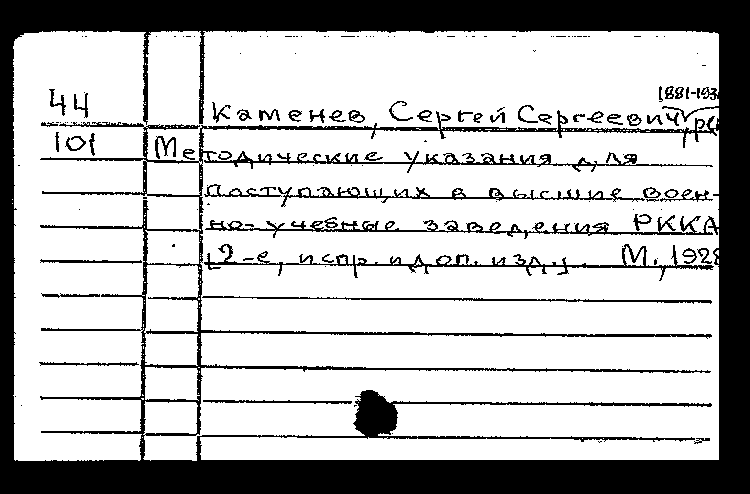 (881-193
44 Каменев, Сергей Сергеевич, ред
101 Методические указания для
поступающих в высшие воен-
но-учебные заведения РККА
[2-е, испр. и доп. изд.]. М., 1928